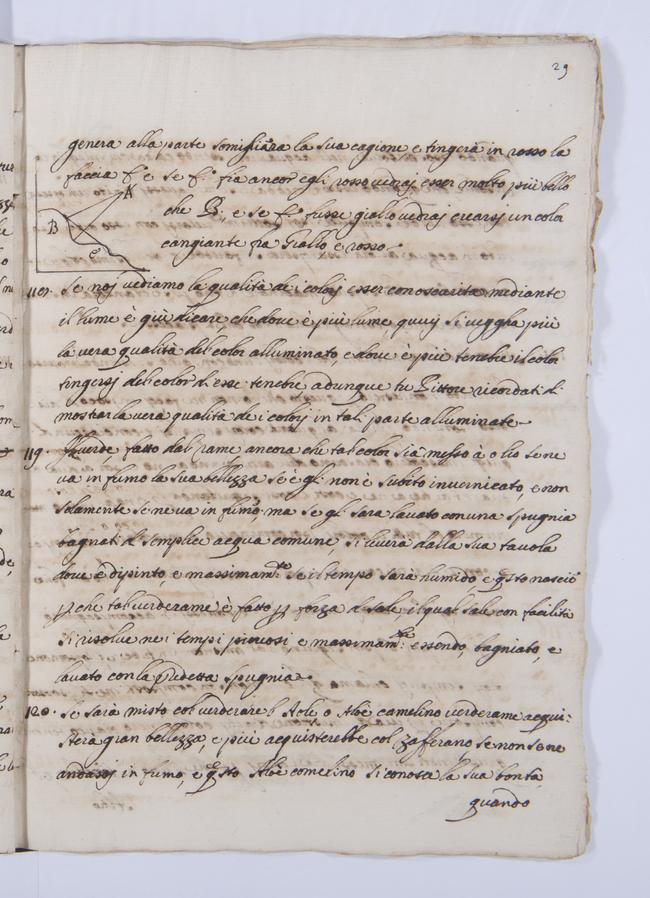 29
genera alla parte somigliara la sua cagione, e tingerà in rosso la
faccia f. e se f. fia ancor egli rosso vedraj esser molto più bello
che B., e se f. fusse giallo vedraj crearsj un color
cangiante fra Giallo e rosso.
A
B
e
118. Se noj vediamo la qualità de i colorj esser conosciuta mediante
il lume è giudicare, che dove è più lume, quivj si veggha più
la vera qualità del color alluminato, e dove è più tenebre il color
tingersj del color di esse tenebre, adunque tu Pittore ricordati di
mostrar la vera qualità de i colorj in tal parte alluminate.
119. Il verde fatto dal rame ancora che tal color sia messo à olio se ne
va in fumo la sua bellezza se è gli non è subito invernicato, e non
solamente se ne va in fumo, ma se gli sara lavato con una spugnia
bagnati di semplice acqua comune, si liverà dalla sua tavola
dove è dipinto, e massimamte se il tempo sarà humido e qsto nascie
p che tal verderame è fatto p forza di sale, il qual sale con facilità
si risolve ne i tempi piovosi, e massimamte essendo, bagniato, e
lavato con la predetta spugnia.
120. Se sarà misto col verderare l Aolè, o Aloè camelino verderame acqui:
sterà gran bellezza, e più acquisterebbe col zafferano se non se ne
andassj in fumo, e qsto Aloè comelino si conosce la sua bontà
quando